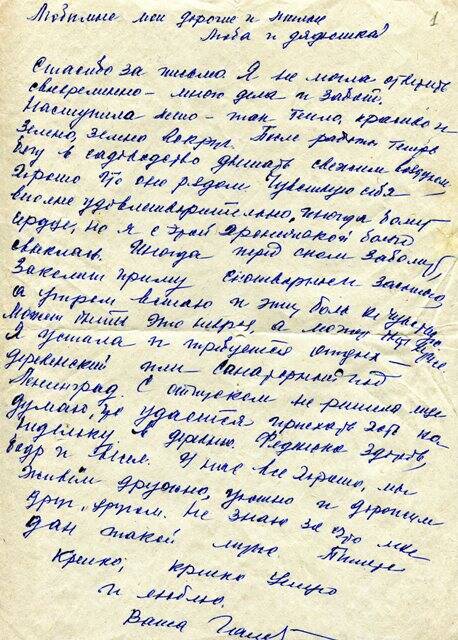 1
Любимые мои дорогие и милые
Люба и дядюшка!
Спасибо за письма. Я не могла ответить
своевременно – много дела и забот.
Наступило лето – так тепло, красиво и
зелено, зелено вокруг. После работы теперь
бегу в садоводство дышать свежим воздухом
Хорошо что оно рядом. Чувствую себя
вполне удовлетворительно, иногда болит
сердце, но я с этой хронической болью
свыклась. Иногда перед сном заболит
приму снотворное засыпаю,
а утром встаю и эту боль не чувствую.
Может быть это нервы, а может быть
Я устала и требуется отдых –
деревенский или санаторный под
Ленинград. С отпуском не решила еще
думаю, что удастся приехать хотя на
недельку в деревню. Федюська здоров,
бодр и весел. У нас все хорошо, мы
живем дружно, уютно и дорожим
друг другом. Не знаю за что мне
дан такой
Крепко, крепко целую
и люблю.
Ваша